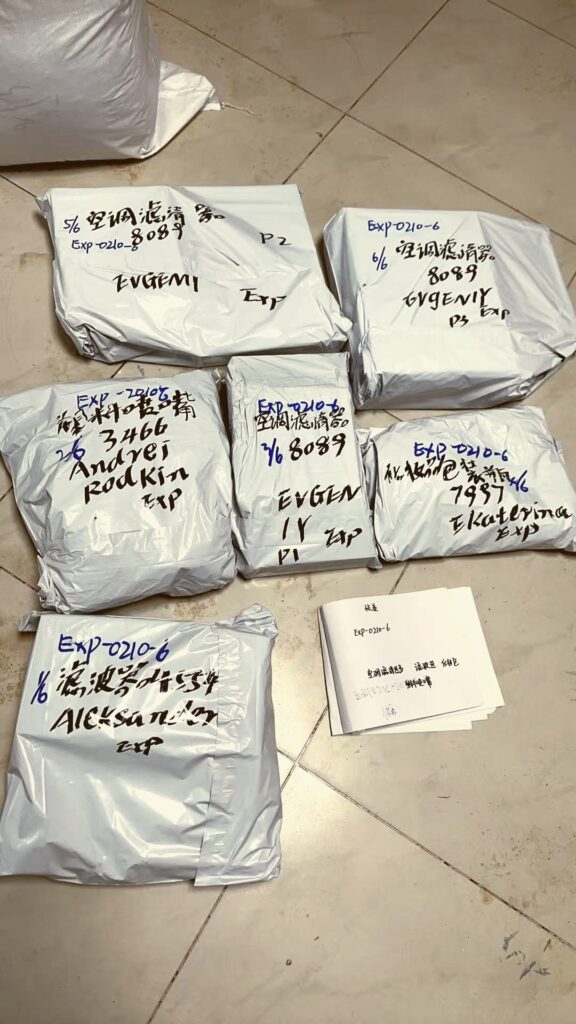 5/6 空调滤清器
Exp-0210-6 8089
P2
EVGENIY
Exp
Exp-0210-6
6/6 空调滤清器
8089
EVgENIY
P3 Exp
燃料喷嘴
2/6 3466
Andrei
Rodkin
Exp
Exp-0210-6
空调滤清器
3/6 8089
EVGEN
IY
P1 Exp
Exp-0210-6
包装
7997 4/6
Ekaterina
Exp
Exp-0210-6
1/6 滤波器
Aleksander
Exp
Exp-0210-6
空调滤清器